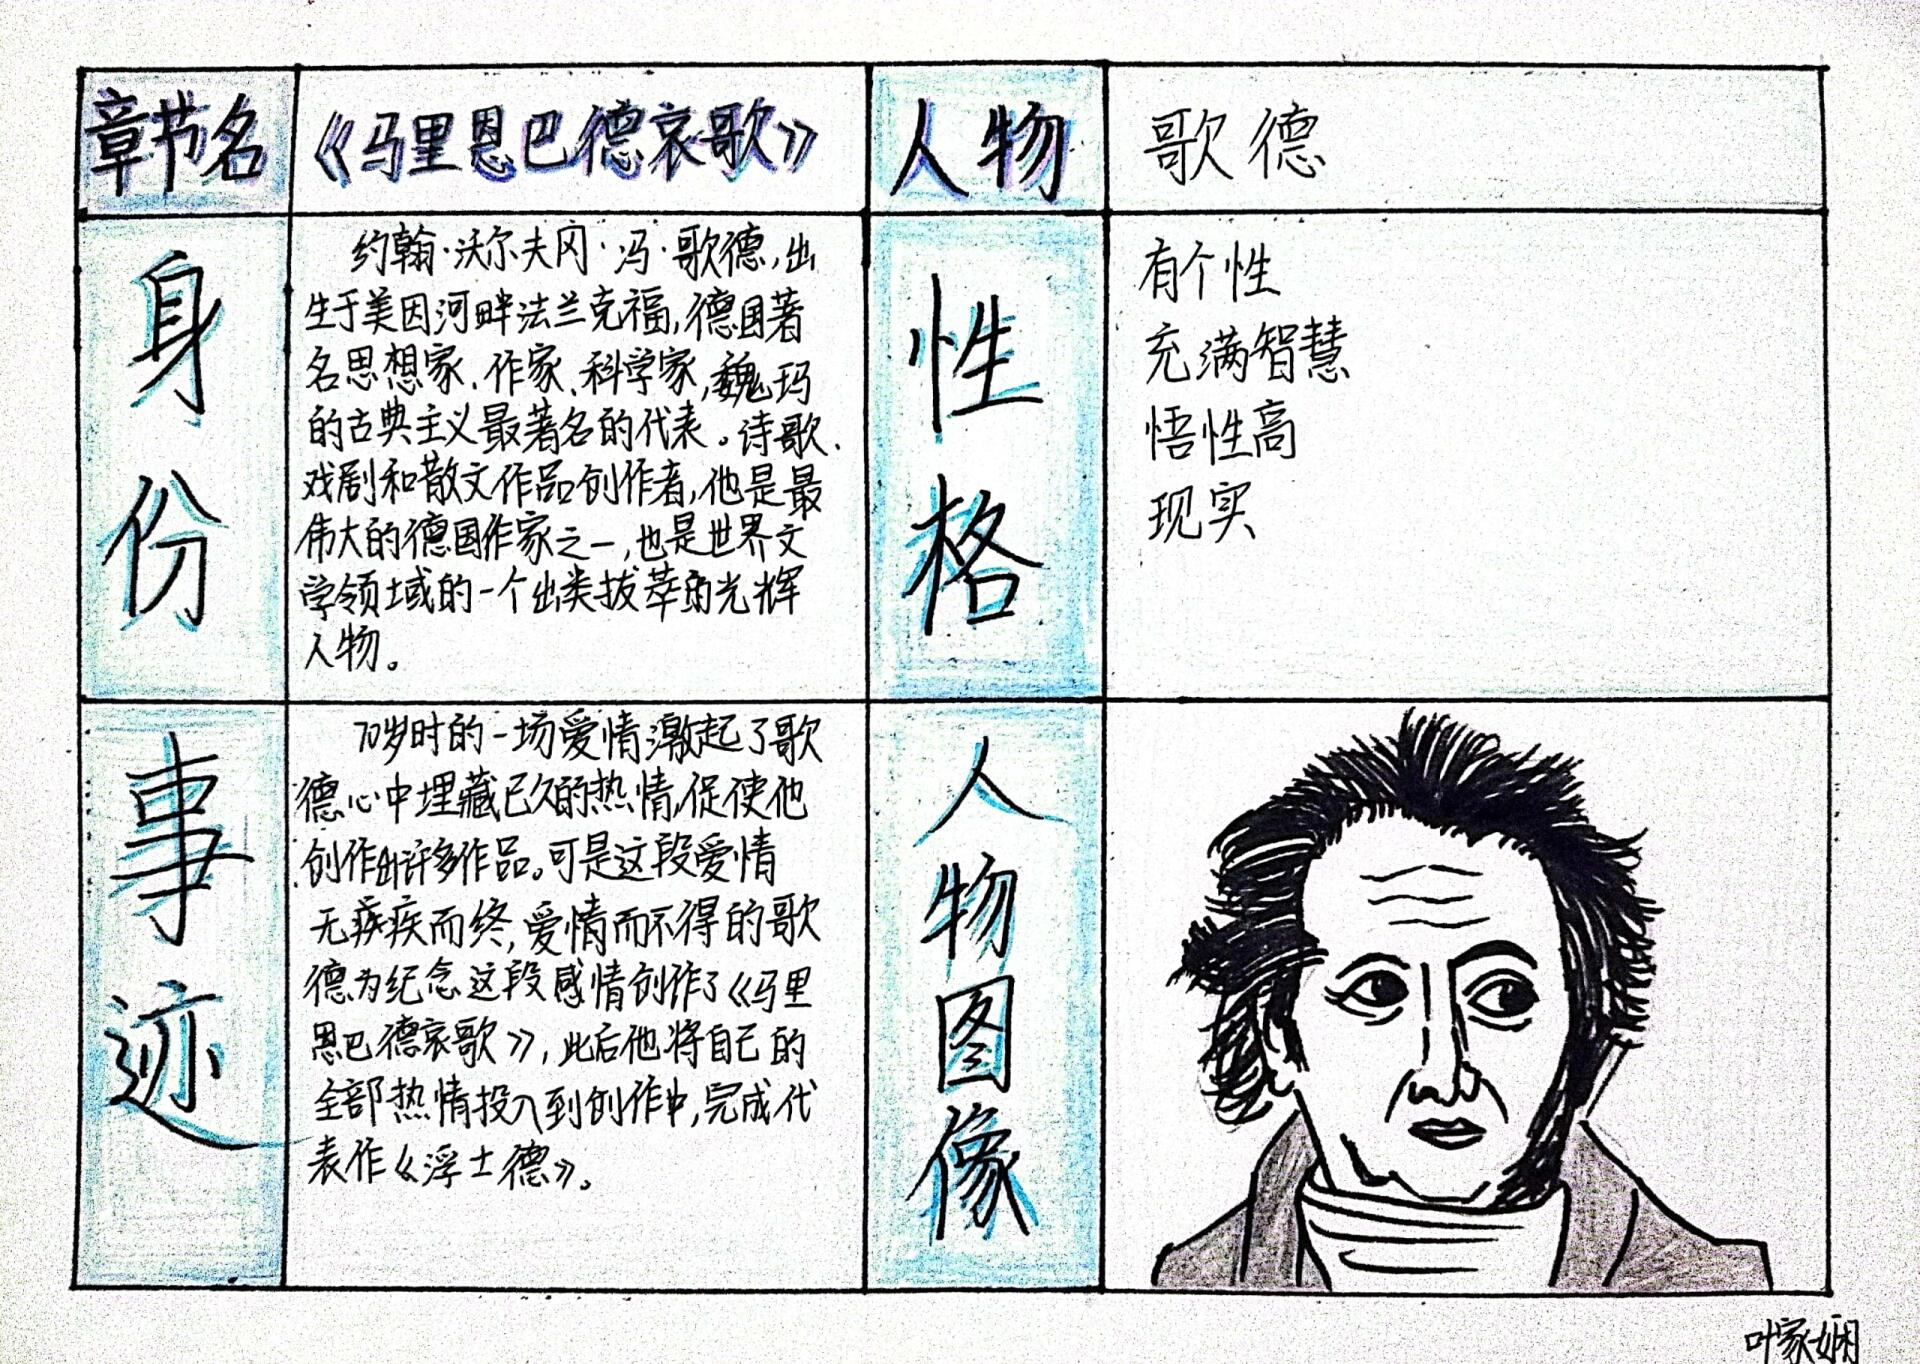 章节名
《马里恩巴德哀歌》
人物
歌德
身份
约翰·沃尔夫冈·冯·歌德,出
生于美因河畔法兰克福,德国著
名思想家、作家、科学家,魏玛
的古典主义最著名的代表。诗歌、
戏剧和散文作品创作者,他是最
伟大的德国作家之一,也是世界文
学领域的一个出类拔萃的光辉
人物。
性格
有个性
充满智慧
悟性高
现实
事迹
70岁时的一场爱情激起了歌
德心中埋藏已久的热情,促使他
创作出许多作品。可是这段爱情
无疾疾而终,爱情而不得的歌
德为纪念这段感情创作了《马里
恩巴德哀歌》,此后他将自己的
全部热情投入到创作中,完成代
表作《浮士德》。
人物图像
叶家娴